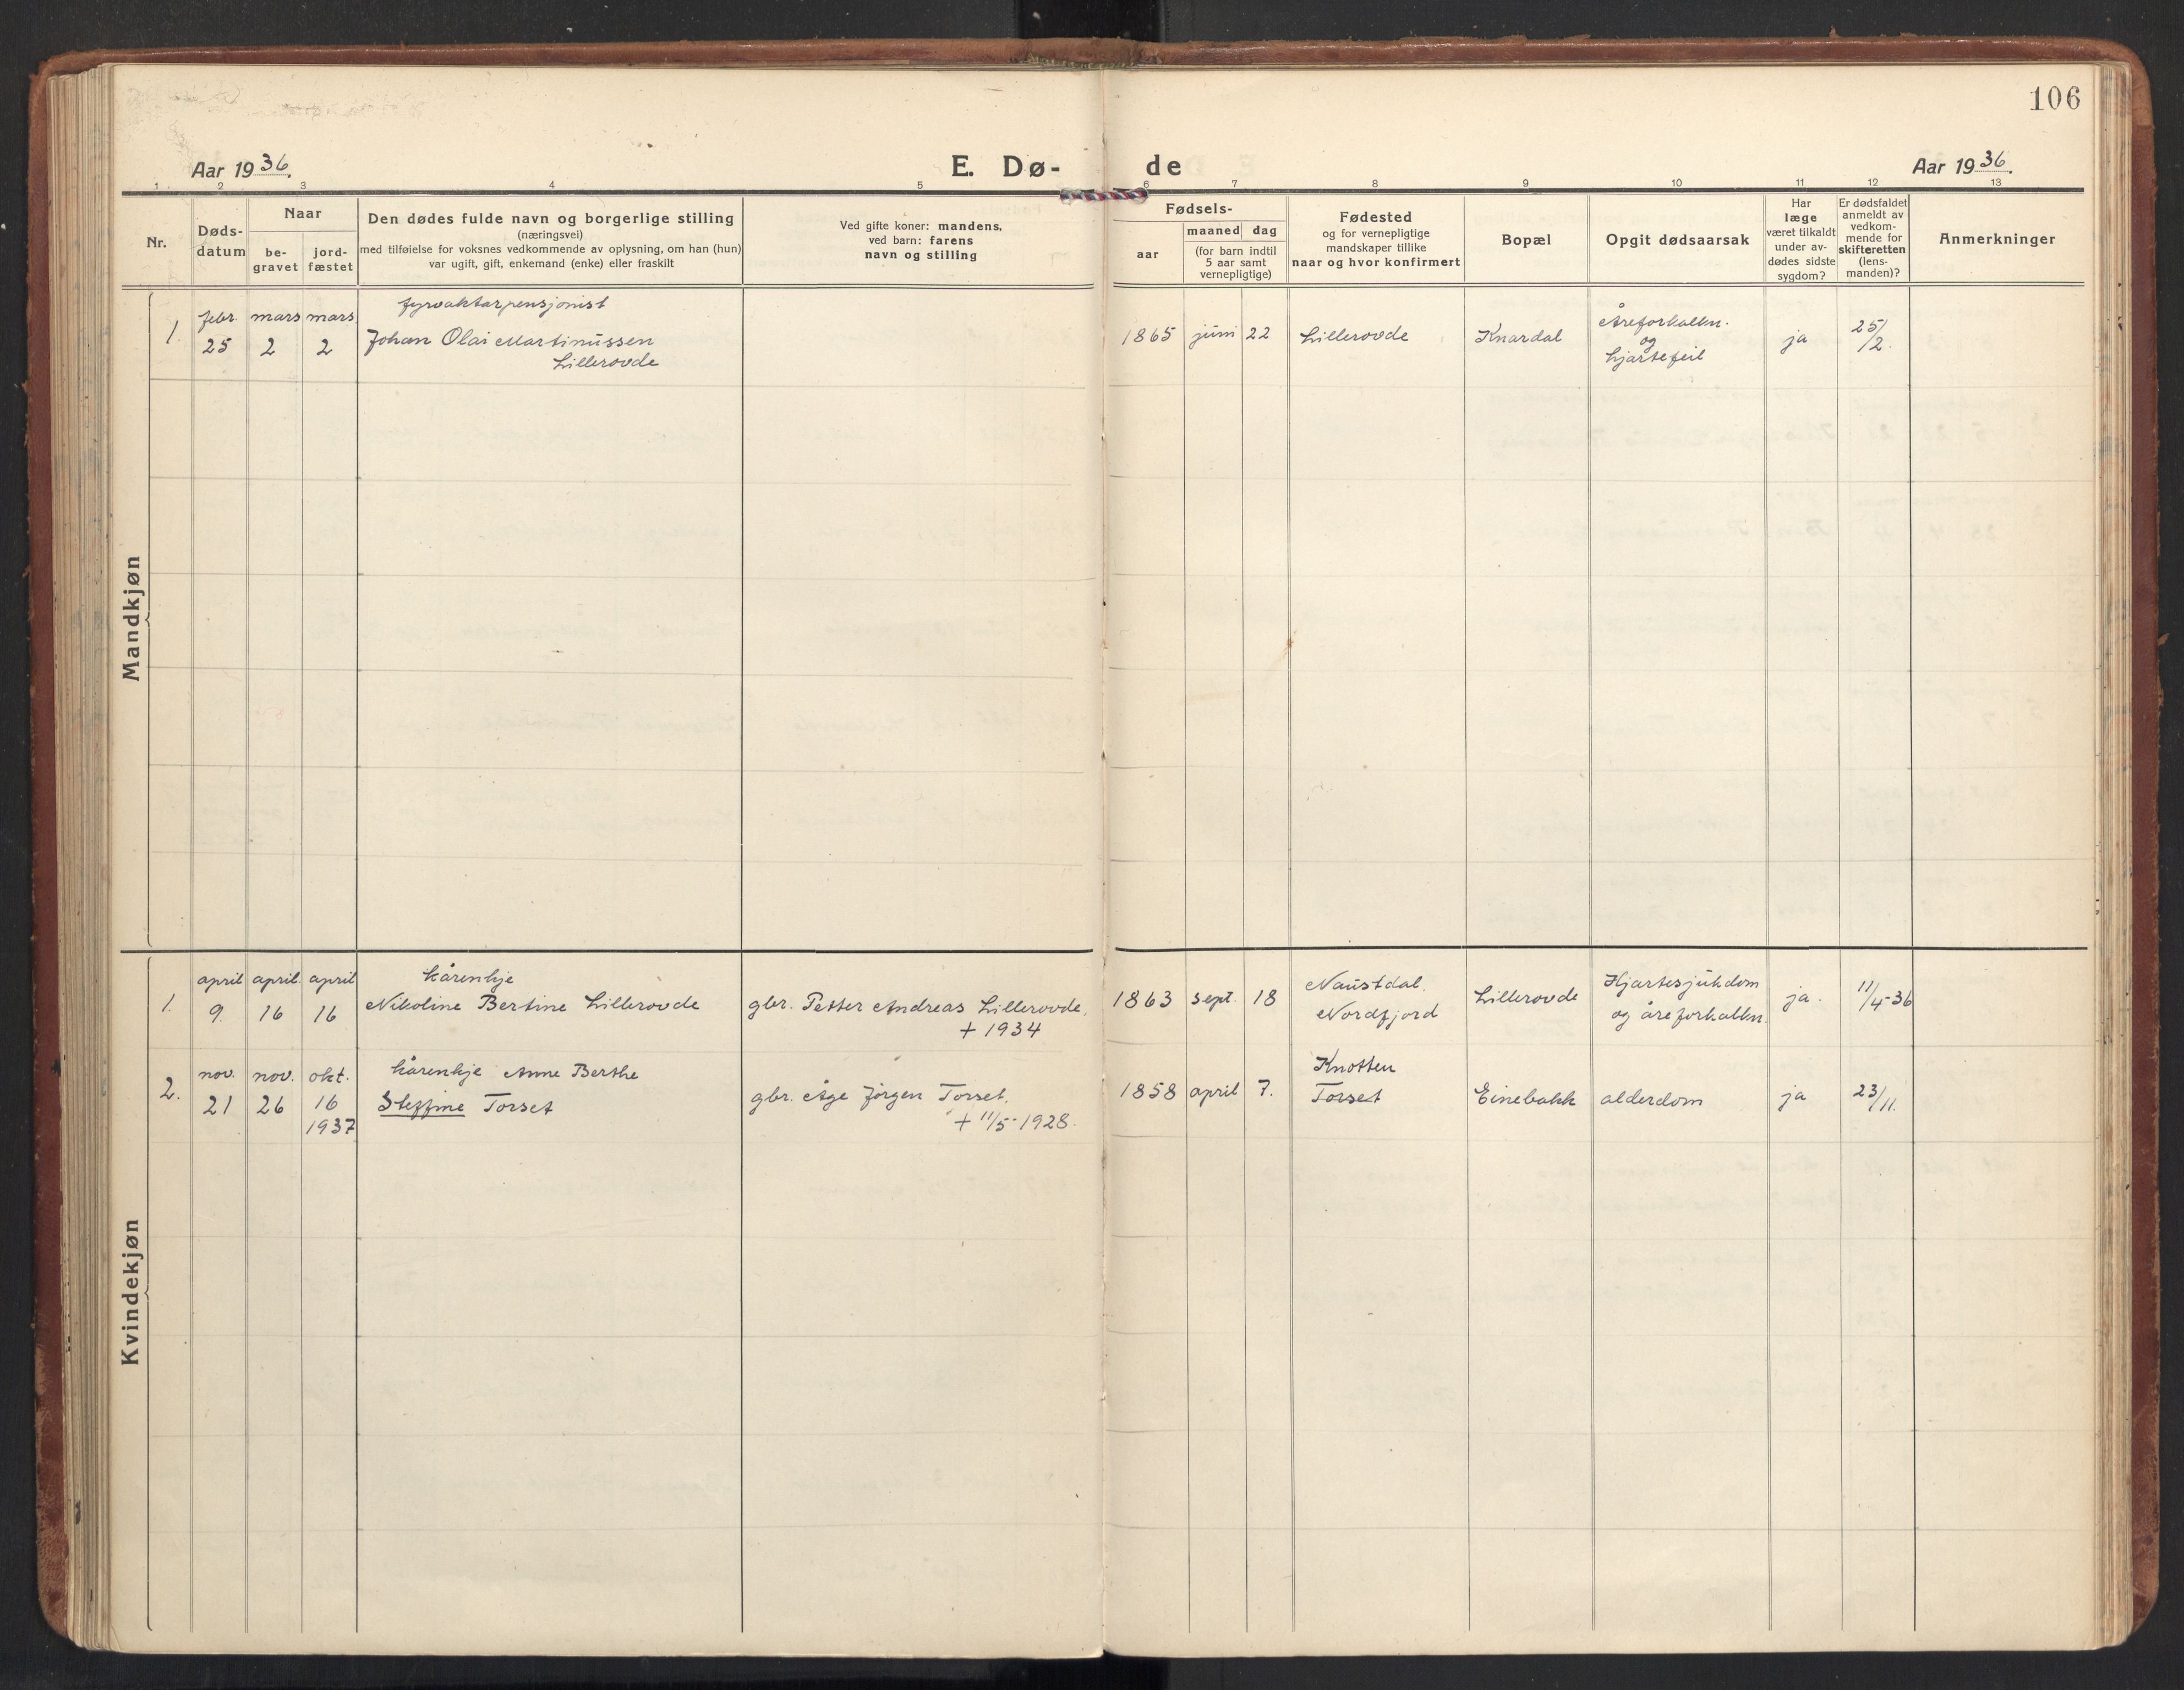 106
Aar 1936.
E. Dø- de
Aar 1936.
1 2 3 4 5 6 7 8 9 10 11 12 13
Nr.
Døds-
datum
Naar
be-
gravet
jord-
fæstet
Den dødes fulde navn og borgerlige stilling
(næringsvei)
med tilføielse for voksnes vedkommende av oplysning, om han (hun)
var ugift, gift, enkemand (enke) eller fraskilt
Ved gifte koner: mandens,
ved barn: farens
navn og stilling
Fødsels-
aar
maaned dag
(for barn indtil
5 aar samt
vernepligtige)
Fødested
og for vernepligtige
mandskaper tillike
naar og hvor konfirmert
Bopæl
Opgit dødsaarsak
Har
læge
været tilkaldt
under av-
dødes sidste
sygdom?
Er dødsfaldet
anmeldt av
vedkom-
mende for
skifteretten
(lens-
manden)?
Anmerkninger
Mandkjøn
1.
febr.
25
mars
2
mars
2
fyrvaktarpensjonist
Johan Olai Martinussen
Lillerovde
1865 juni 22
Lillerovde
Knardal
Åreforkalkn.
og
hjartefeil
ja
25/2.
Kvindekjøn
1.
april
9
april
16
april
16
kårenkje
Nikoline Bertine Lillerovde
gbr. Petter Andreas Lillerovde,
+ 1934
1863 sept. 18
Naustdal.
Nordfjord
Lillerovde
Hjartesjukdom
og åreforkalkn.
ja.
11/4-36
2.
nov.
21
nov.
26
okt.
16
1937
kårenkje Anne Berthe
Steffine Torset
gbr. Åge Jørgen Torset.
+ 11/5-1928.
1858 april 7.
Knotten
Torset
Einebakk
alderdom
ja
23/11.